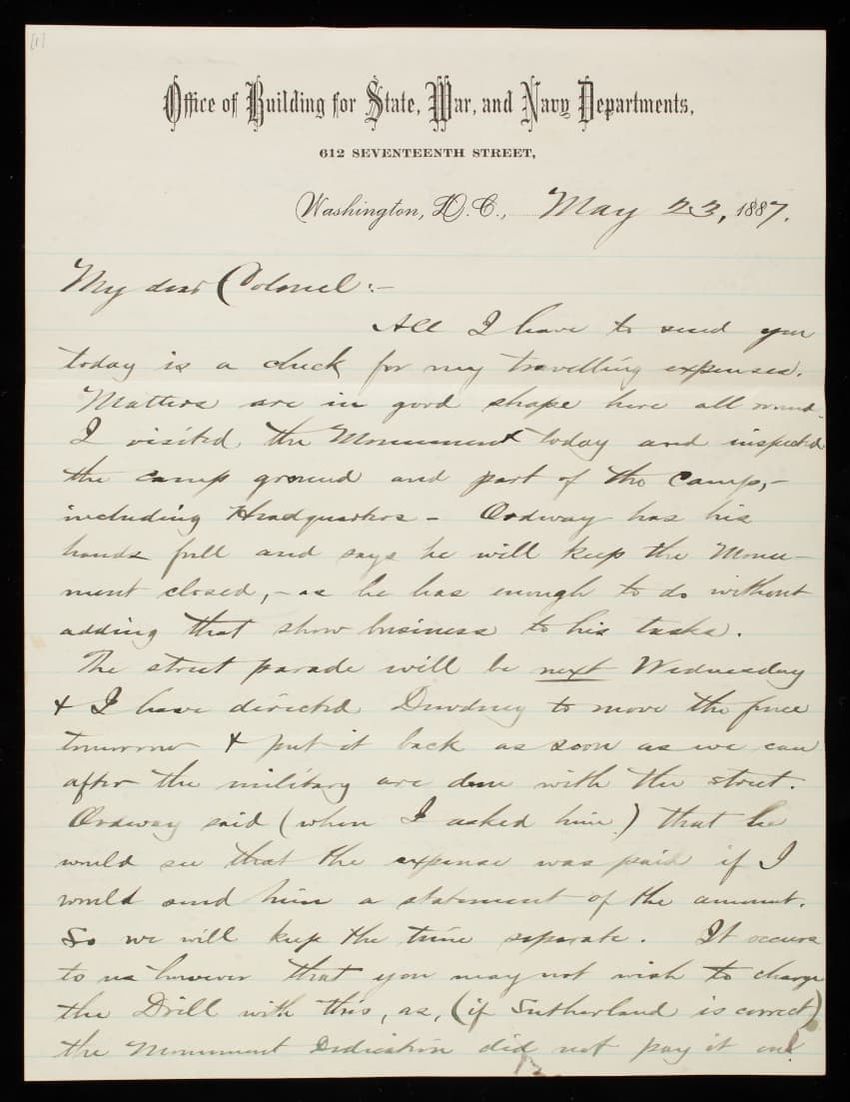 (1)
Office of Building for State, War, and Navy Departments,
612 SEVENTEENTH STREET,
Washington, D. C., May 23, 1887.
My dear Colonel:-
All I have to send you
today is a check for my travelling expenses.
Matters are in good shape here all round.
I visited the Monument today and inspected
the camp ground and part of the Camp,-
including Headquarters - Ordway has his
hands full and says he will keep the Monu-
ment closed,- as he has enough to do without
adding that show business to his tasks.
The street parade will be next Wednesday
& I have directed Dewdney to move the fence
tomorrow & put it back as soon as we can
after the military are done with the street.
Ordway said (when I asked him) that he
would see that the expense was paid if I
would send him a statement of the amount.
So we will keep the time separate. It occurs
to us however that you may not wish to charge
the Drill with this, as, (if Sutherland is correct)
the Monument Dedication did not pay it and